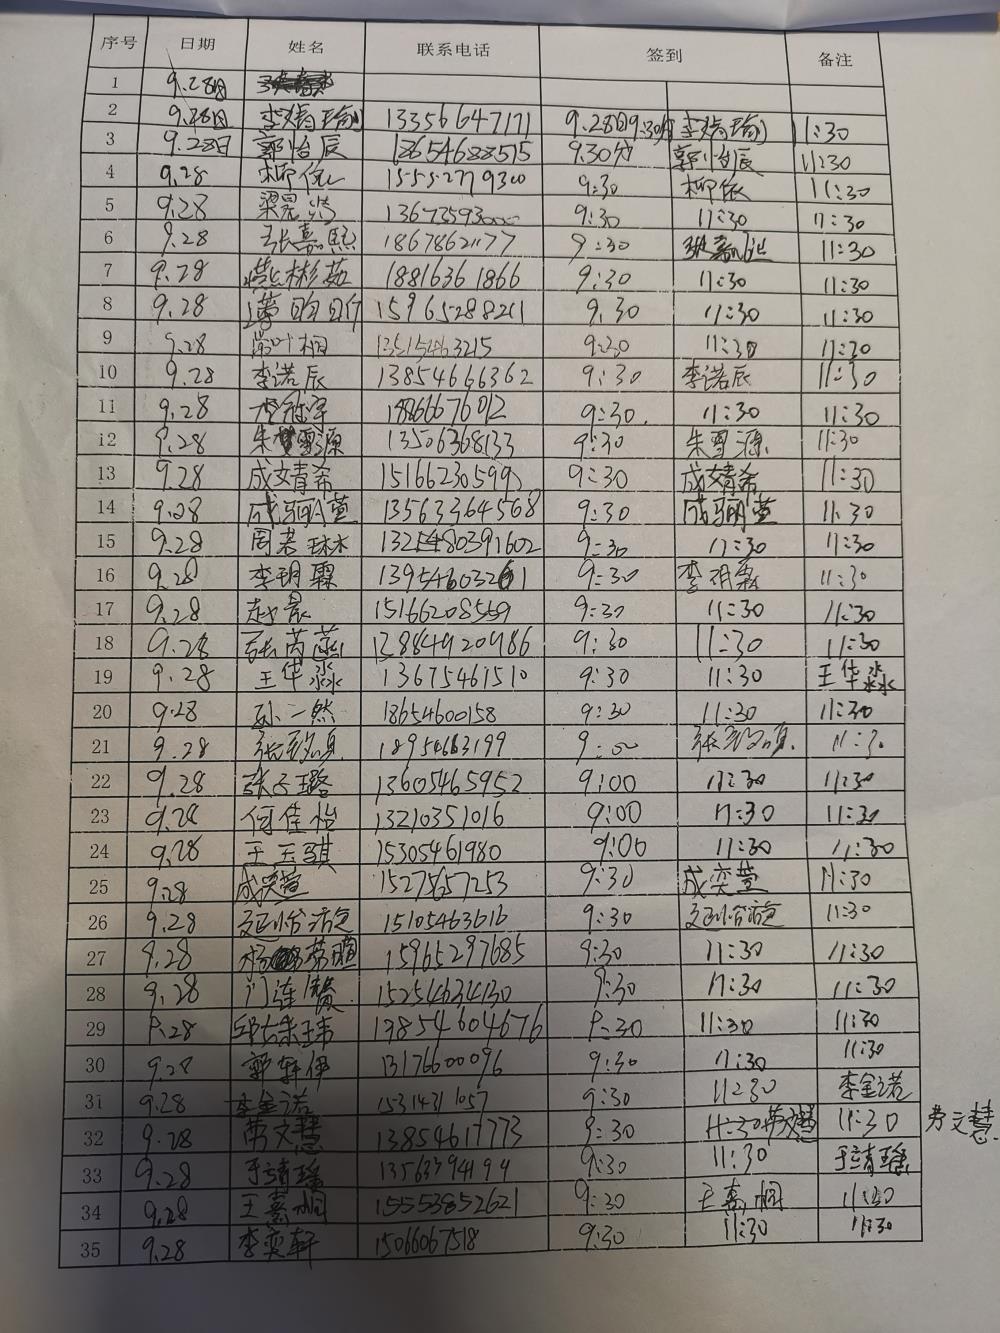 序号 日期 姓名 联系电话 签到 备注
1 9.28日
2 9.28日 李婧瑜 13356647171 9.28日9:30分 李婧瑜 11:30
3 9.28日 郭怡辰 18654688515 9:30分 郭怡辰 11:30
4 9.28 柳依 15552779300 9:30 柳依 11:30
5 9.28 9:30 11:30 11:30
6 9.28 张嘉熙 9:30 11:30
7 9.28 彬茹 18816361866 9:30 11:30 11:30
8 9.28 15965288211 9:30 11:30 11:30
9 9.28 13515463215 9:30 11:30 11:30
10 9.28 李诺辰 13854666362 9:30 李诺辰 11:30
11 9.28 18866676012 9:30. 11:30 11:30
12 9.28 朱雪源 13506368133 9:30 朱雪源 11:30
13 9.28 成婧希 9:30 成婧希 11:30
14 9.28 13563364568 9:30 11:30
15 9.28 周若琳 9:30 11:30 11:30
16 9.28 李玥霖 9:30 李玥霖 11:30
17 9.28 赵晨 15166208559 9:30 11:30 11:30
18 9.28 张芮菡 13884920486 9:30 11:30 11:30
19 9.28 王华淼 13675461510 9:30 11:30 王华淼
20 9.28 孙一然 18654600158 9:30 11:30 11:30
21 9.28 18954683199 9:00 11:30
22 9.28 张子璐 13605465952 9:00 11:30 11:30
23 9.28 何佳怡 13210351016 9:00 11:30 11:30
24 9.28 王玉骐 15305461980 9:00 11:30 11:30
25 9.28 成奕萱 15275657253 9:30 成奕萱 11:30
26 9.28 15105463616 9:30 11:30
27 9.28 15965297685 9:30 11:30 11:30
28 9.28 门连赞 15254634130 9:30 11:30 11:30
29 9.28 19854604676 9:30 11:30 11:30
30 9.28 郭轩伊 13176600096 9:30 11:30 11:30
31 9.28 李金诺 15314311057 9:30 11:30 李金诺
32 9.28 劳文慧 13854617773 9:30 11:30劳文慧 11:30 劳文慧.
33 9.28 于靖瑶 13563394194 9:30 11:30 于靖瑶
34 9.28 王嘉桐 15553852621 9:30 王嘉桐 11:30
35 9.28 李奕轩 15066067518 9:30 11:30 11:30